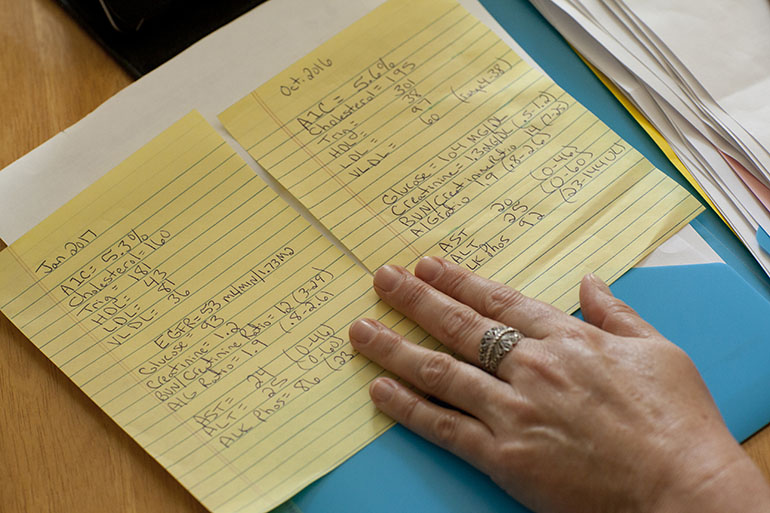 Jan 2017
A1C = 5.3%
Cholesterol = 160
Trig = 181
HDL = 43
LDL = 81
VLDL = 36
EGFR = 53 ml/min/1.73m2
Glucose = 93
Creatinine = 1.2
BUN/Creatinine Ratio = 12 (3-29)
A/G Ratio = 1.9 (.8-2.6)
AST = 24 (0-46)
ALT = 25 (0-60)
ALK Phos = 86 (23
Oct. 2016
A1C = 5.6%
Cholesterol = 195
Trig = 301
HDL = 38
LDL = 97
VLDL = 60 (4-38)
Glucose = 104 MG/DL
Creatinine = 1.3 MG/DL (.5-1.2)
BUN/Creatinine Ratio 14 (7-25)
A/G Ratio 1.9 (.8-2.6)
AST 20 (0-46)
ALT = 25 (0-60)
ALK Phos 92 (23-144 U/L)